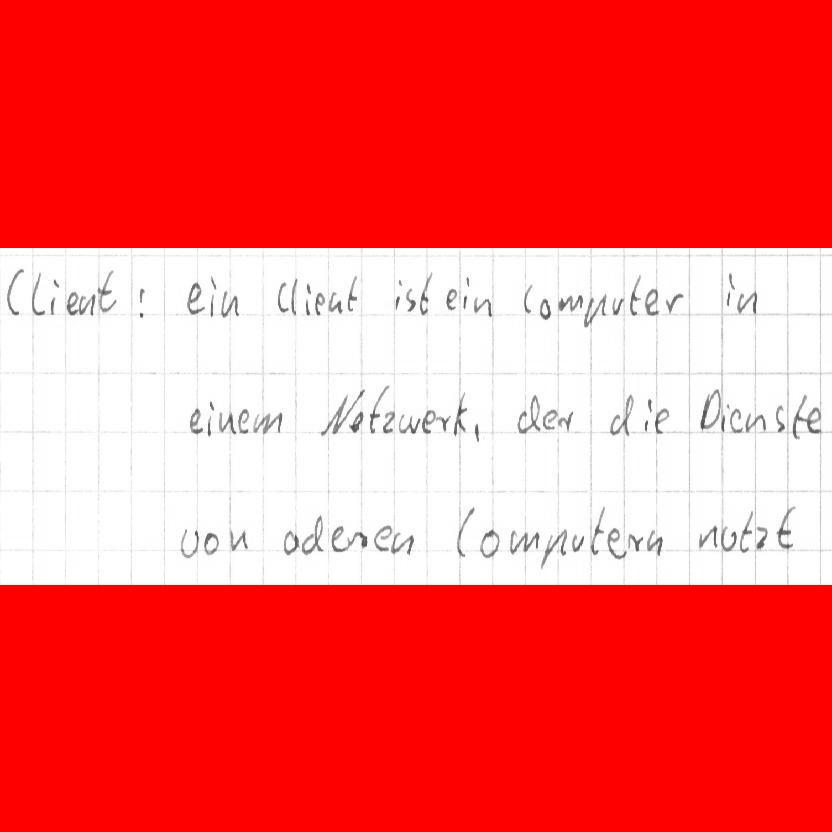 Client: ein Client ist ein Computer in
einem Netzwerk, der die Dienste
von aderen Computern nutzt